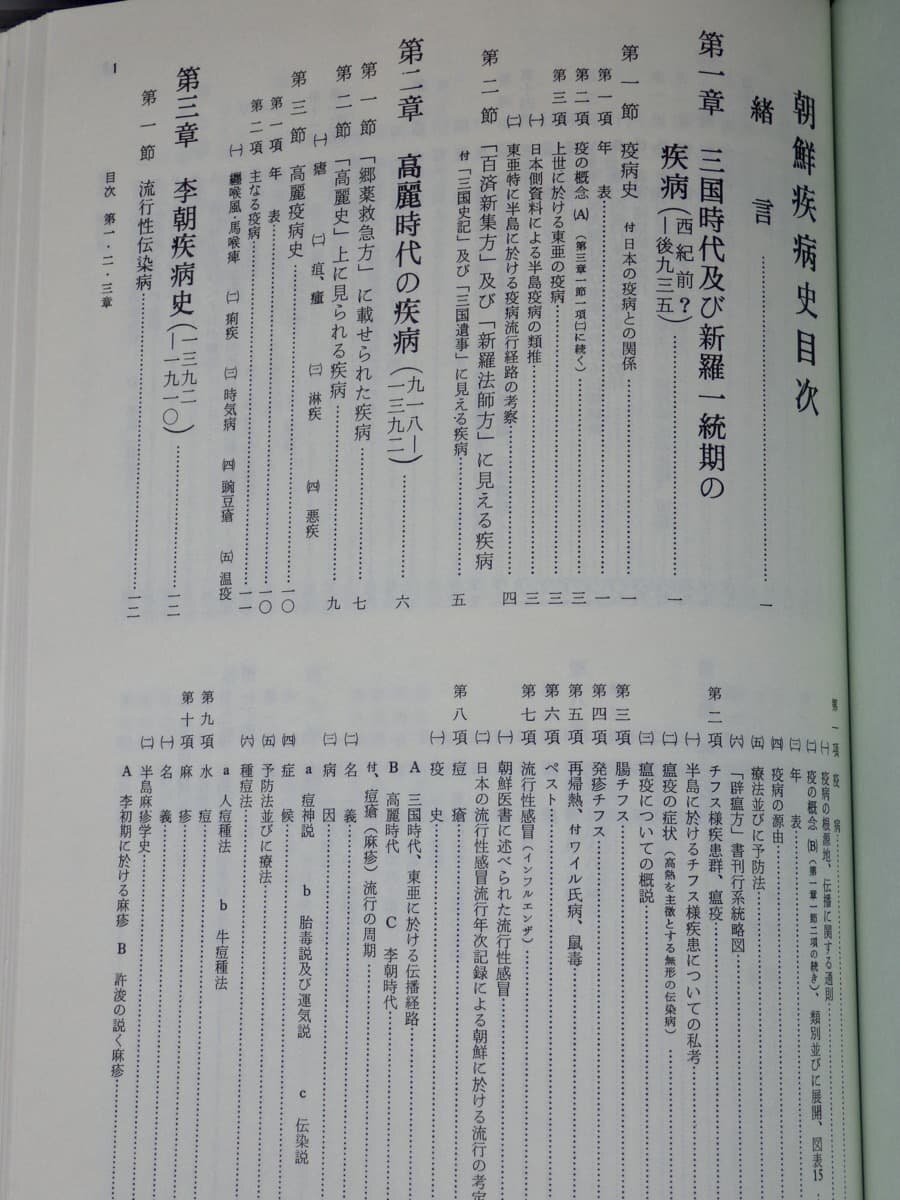 朝鮮疾病史目次
緒言……一
第一章 三国時代及び新羅一統期の
疾病（西紀前？―後九三五）……一
第一節 疫病史 付 日本の疫病との関係……一
第一項 年表……一
第二項 疫の概念 (A)（第三章一節一項㈡に続く）……三
第三項 上世に於ける東亜の疫病……三
㈠ 日本側資料による半島疫病の類推……三
㈡ 東亜特に半島に於ける疫病流行経路の考察……四
第二節 「百済新集方」及び「新羅法師方」に見える疾病
付「三国史記」及び「三国遺事」に見える疾病……五
第二章 高麗時代の疾病（九一八―一三九二）……六
第一節 「郷薬救急方」に載せられた疾病……七
第二節 「高麗史」上に見られる疾病……九
㈠ 瘧 ㈡ 疽、癰 ㈢ 淋疾 ㈣ 悪疾
第三節 高麗疫病史……一〇
第一項 年表……一〇
第二項 主なる疫病……一一
㈠ 纏喉風・馬喉痺 ㈡ 痢疾 ㈢ 時気病 ㈣ 豌豆瘡 ㈤ 温疫
第三章 李朝疾病史（一三九二―一九一〇）……一二
第一節 流行性伝染病……一二
目次 第一・二・三章
1
第一項 疫病……
㈠ 疫病の根源地、伝播に関する通則……
㈡ 疫の概念 (B)（第一章一節二項の続き）、類別並びに展開、図表15
㈢ 年表……
㈣ 疫病の源由……
㈤ 療法並びに予防法……
㈥ 「辟瘟方」書刊行系統略図……
第二項 チフス様疾患群、瘟疫……
㈠ 半島に於けるチフス様疾患についての私考……
㈡ 瘟疫の症状（高熱を主徴とする無形の伝染病）……
㈢ 瘟疫についての概説……
第三項 腸チフス……
第四項 発疹チフス……
第五項 再帰熱、付ワイル氏病、鼠毒……
第六項 ペスト……
第七項 流行性感冒（インフルエンザ）……
㈠ 朝鮮医書に述べられた流行性感冒……
㈡ 日本の流行性感冒流行年次記録による朝鮮に於ける流行の考定
第八項 痘瘡……
㈠ 疫史……
A 三国時代、東亜に於ける伝播経路……
B 高麗時代 C 李朝時代……
付、痘瘡（麻疹）流行の周期……
㈡ 名義……
㈢ 病因……
a 痘神説 b 胎毒説及び運気説 c 伝染説
㈣ 症候……
㈤ 予防法並びに療法……
㈥ 種痘法……
a 人痘種法 b 牛痘種法
第九項 水痘……
第十項 麻疹……
㈠ 名義……
㈡ 半島麻疹学史……
A 李初期に於ける麻疹 B 許浚の説く麻疹……